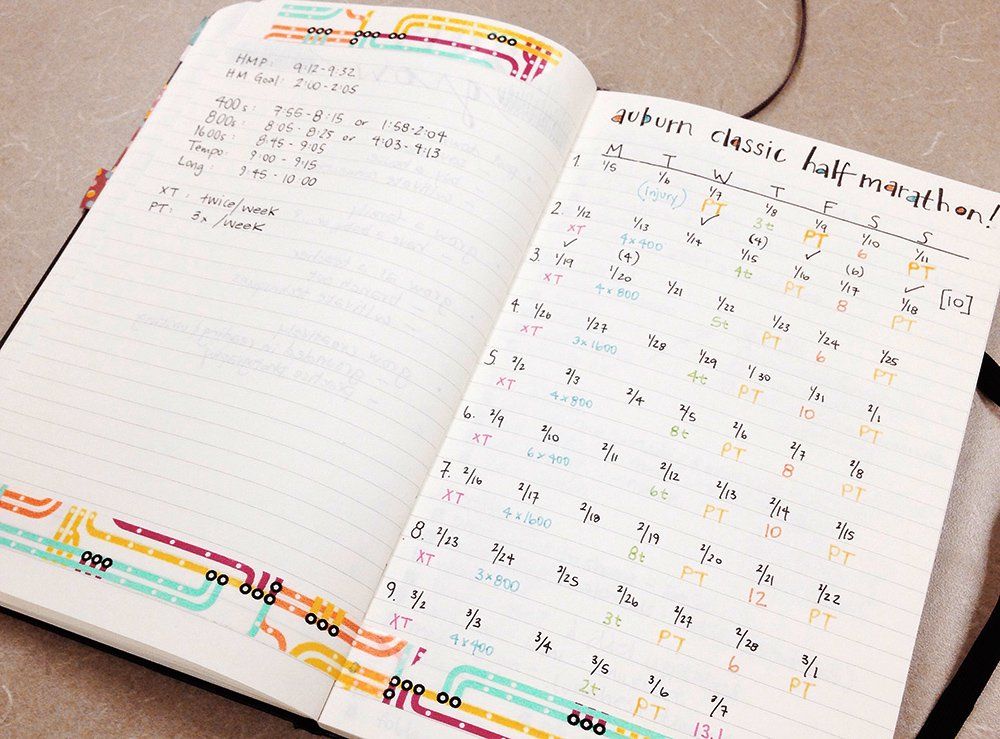 HMP: 9:12-9:32
HM Goal: 2:00-2:05
400s: 7:55-8:15 or 1:58-2:04
800s: 8:05-8:25 or 4:03-4:13
1600s: 8:45-9:05
Tempo: 9:00-9:15
Long: 9:45-10:00
XT: twice/week
PT: 3x/week
auburn classic half marathon!
M T W T F S S
1. 1/5 1/6 1/7 1/8 1/9 1/10 1/11
(injury) PT 3t PT 6 PT
✓ (4) ✓ (6) ✓ [10]
2. 1/12 1/13 1/14 1/15 1/16 1/17 1/18
XT 4x400 4t PT 8 PT
✓ (4)
3. 1/19 1/20 1/21 1/22 1/23 1/24 1/25
XT 4x800 5t PT 6 PT
4. 1/26 1/27 1/28 1/29 1/30 1/31 2/1
XT 3x1600 4t PT 10 PT
5. 2/2 2/3 2/4 2/5 2/6 2/7 2/8
XT 4x800 8t PT 8 PT
6. 2/9 2/10 2/11 2/12 2/13 2/14 2/15
XT 6x400 6t PT 10 PT
7. 2/16 2/17 2/18 2/19 2/20 2/21 2/22
XT 4x1600 8t PT 12 PT
8. 2/23 2/24 2/25 2/26 2/27 2/28 3/1
XT 3x800 3t PT 6 PT
9. 3/2 3/3 3/4 3/5 3/6 3/7
XT 4x400 2t PT 13.1